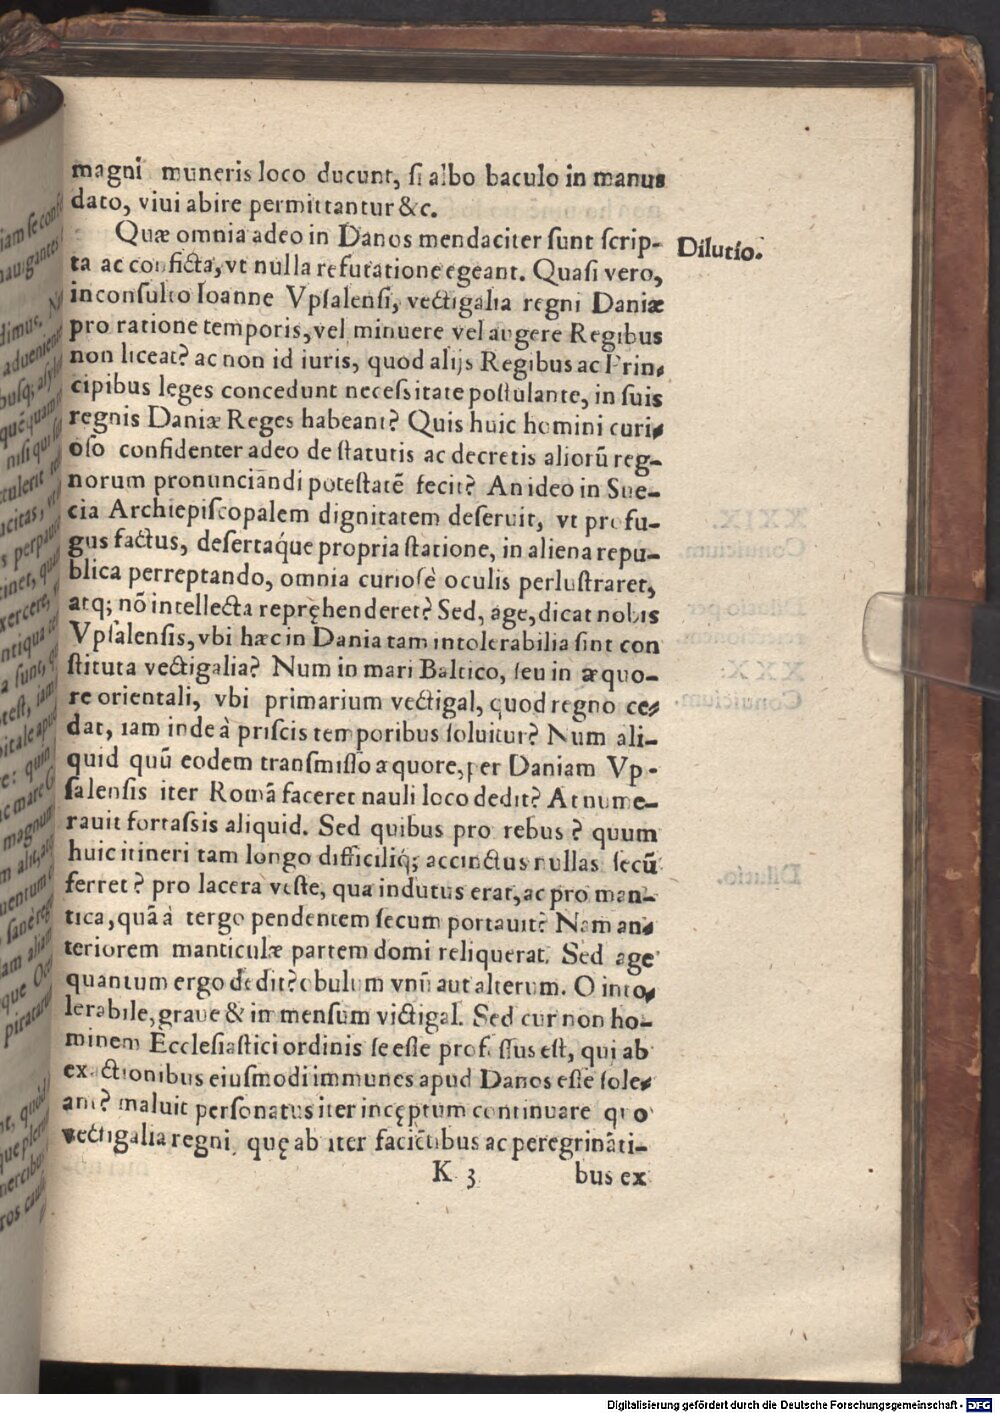 magni muneris loco ducunt, ſi albo baculo in manus
dato, viui abire permittantur &c.
Quæ omnia adeo in Danos mendaciter ſunt ſcrip-
Dilutio.
ta ac conficta, vt nulla refutatione egeant. Quaſi vero,
inconſulto Ioanne Vpſalenſi, vectigalia regni Daniæ
pro ratione temporis, vel minuere vel augere Regibus
non liceat? ac non id iuris, quod alijs Regibus ac Prin-
cipibus leges concedunt neceſsitate poſtulante, in ſuis
regnis Daniæ Reges habeant? Quis huic homini curi-
oſo confidenter adeo de ſtatutis ac decretis aliorū reg-
norum pronunciandi poteſtatē fecit? An ideo in Sue-
cia Archiepiſcopalem dignitatem deſeruit, vt profu-
gus factus, deſertaq́ue propria ſtatione, in aliena repu-
blica perreptando, omnia curioſè oculis perluſtraret,
atq; nō intellecta repręhenderet? Sed, age, dicat nobis
Vpſalenſis, vbi hæc in Dania tam intolerabilia ſint con
ſtituta vectigalia? Num in mari Baltico, ſeu in æquo-
re orientali, vbi primarium vectigal, quod regno ce-
dat, iam inde à priſcis temporibus ſoluitur? Num ali-
quid quū eodem tranſmiſſo æquore, per Daniam Vp-
ſalenſis iter Romā faceret nauli loco dedit? At nume-
rauit fortaſsis aliquid. Sed quibus pro rebus? quum
huic itineri tam longo difficiliq́; accinctus nullas ſecū
ferret? pro lacera veſte, qua indutus erat, ac pro man-
tica, quā à tergo pendentem ſecum portauit? Nam an-
teriorem manticulæ partem domi reliquerat. Sed age
quantum ergo dedit? obulum vnū aut alterum. O into-
lerabile, graue & immenſum victigal. Sed cur non ho-
minem Eccleſiaſtici ordinis ſe eſſe profeſſus eſt, qui ab
exactionibus eiuſmodi immunes apud Danos eſſe ſole-
ant? maluit perſonatus iter incęptum continuare quo
vectigalia regni, quę ab iter facientibus ac peregrināti-
K 3 bus ex
Digitalisierung gefördert durch die Deutsche Forschungsgemeinschaft - DFG